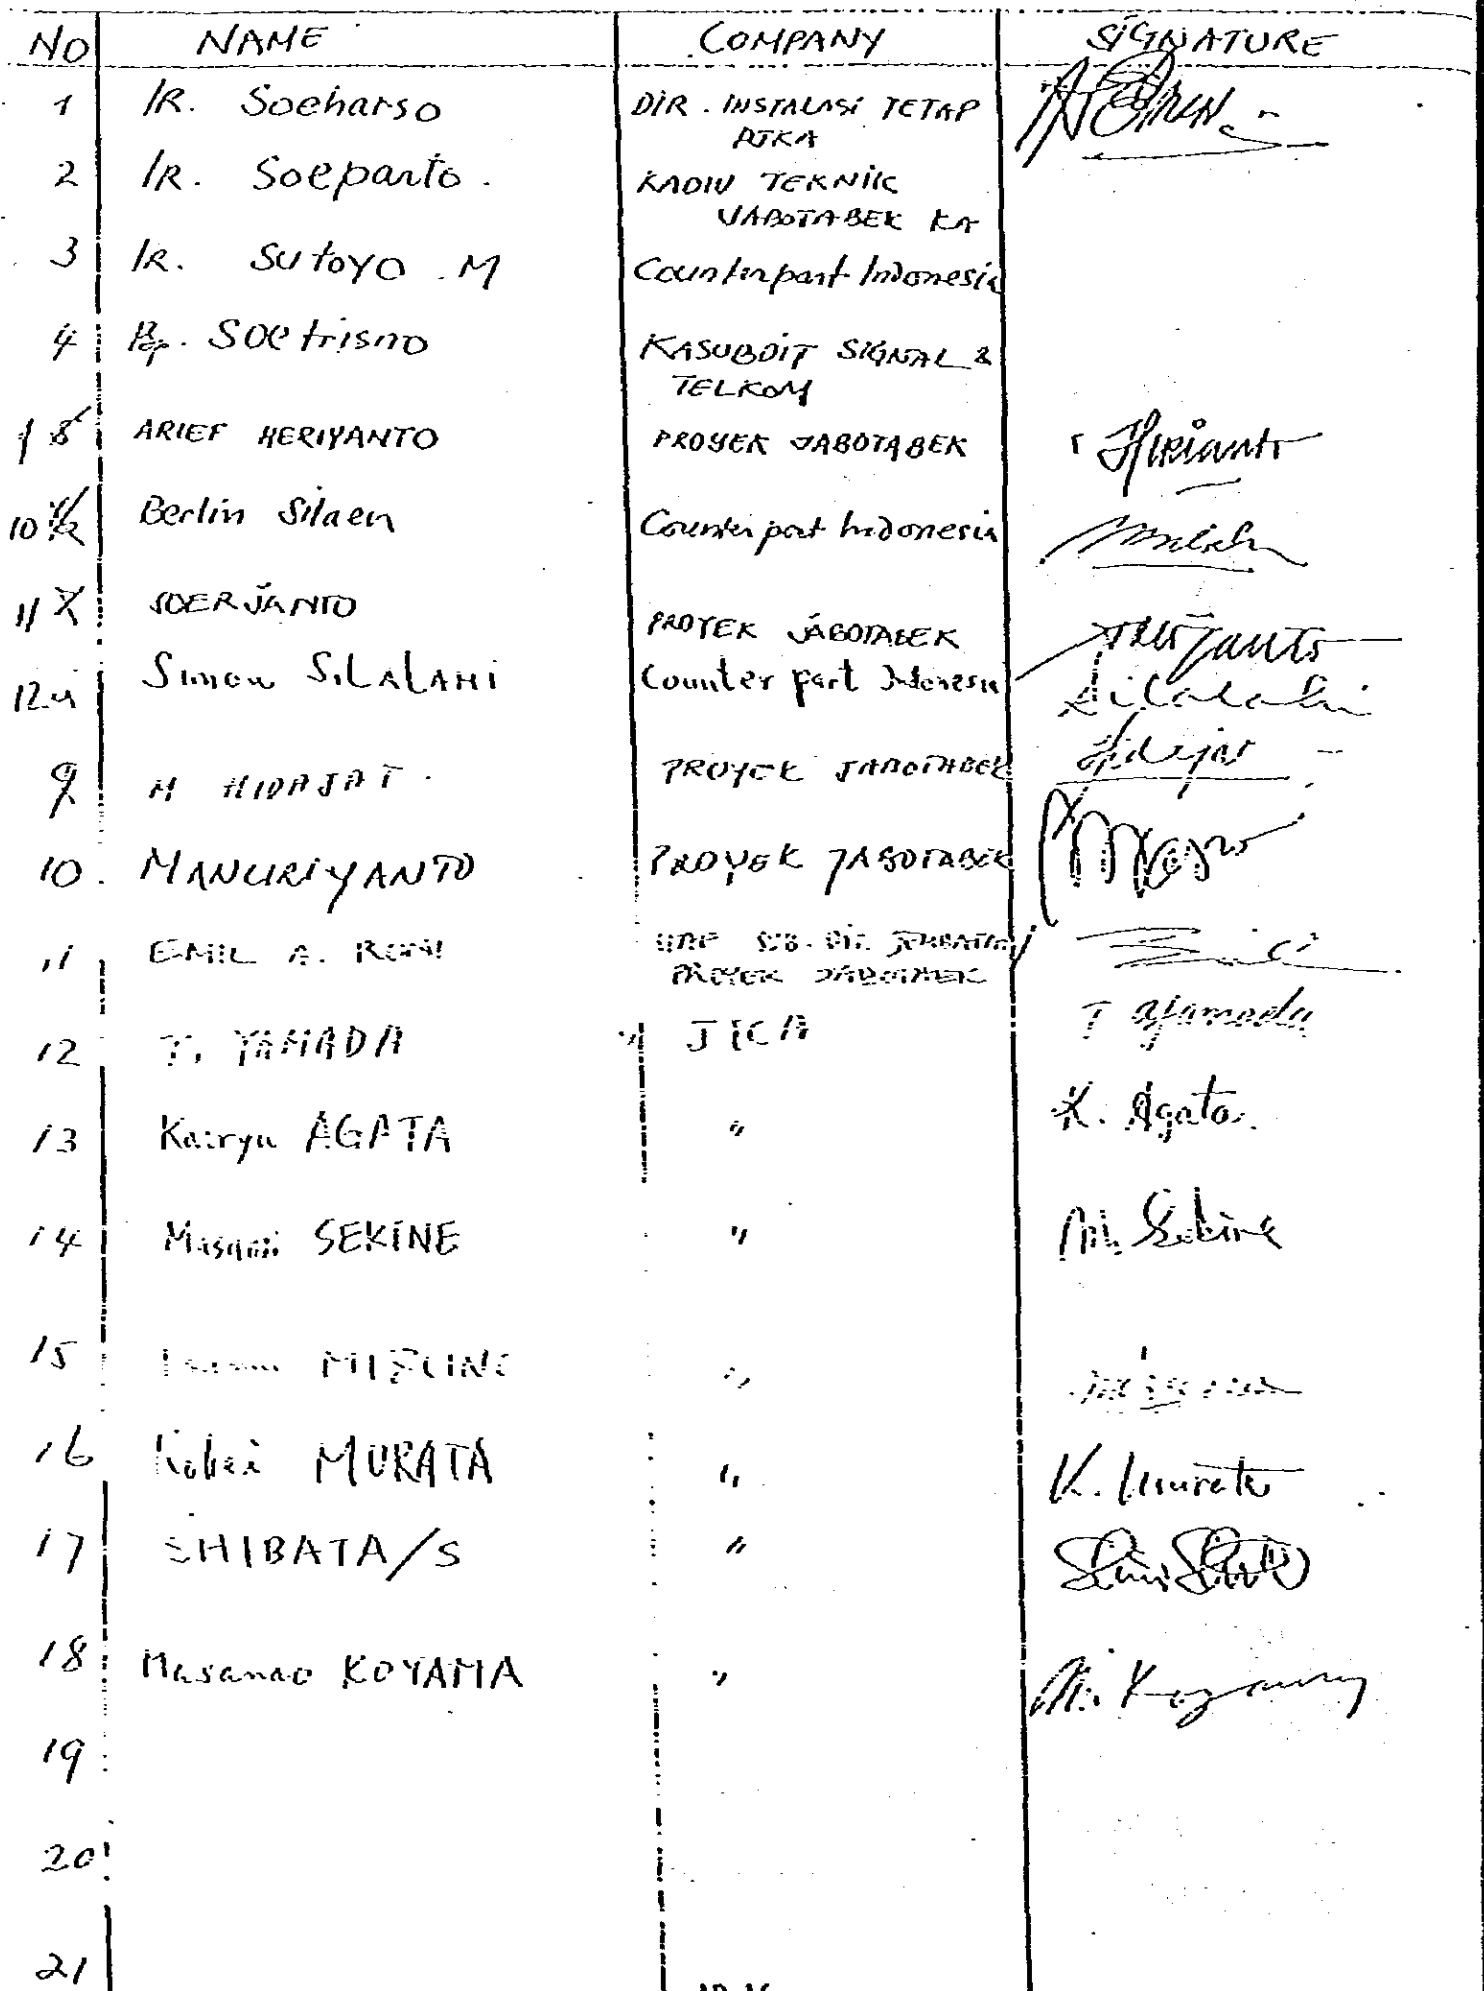 NO NAME COMPANY SIGNATURE
1 IR. Soeharso DIR. INSTALASI TETAP
PJKA
2 IR. Soeparto. KADIV TEKNIK
JABOTABEK KA
3 IR. Sutoyo .M Counterpart Indonesia
4 Bp. Soetrisno KASUBDIT SIGNAL &
TELKOM
ARIEF HERIYANTO PROYEK JABOTABEK
10 Berlin Silaen Counterpart Indonesia
11 SOERJANTO PROYEK JABOTABEK
12 Simon SILALAHI Counter part Indonesia Silalahi
9 M HIDAJAT. PROYEK JABOTABEK
10. MANURIYANTO PROYEK JABOTABEK
11 EMIL A.
PROYEK JABOTABEK
12 T. YAMADA JICA
13 Kairyu AGATA " K. Agata
14 Masami SEKINE " M. Sekine
15 "
16 Kohei MURATA " K. Murata
17 SHIBATA/S "
18 Masanao KOYAMA " M. Koyama
19
20
21